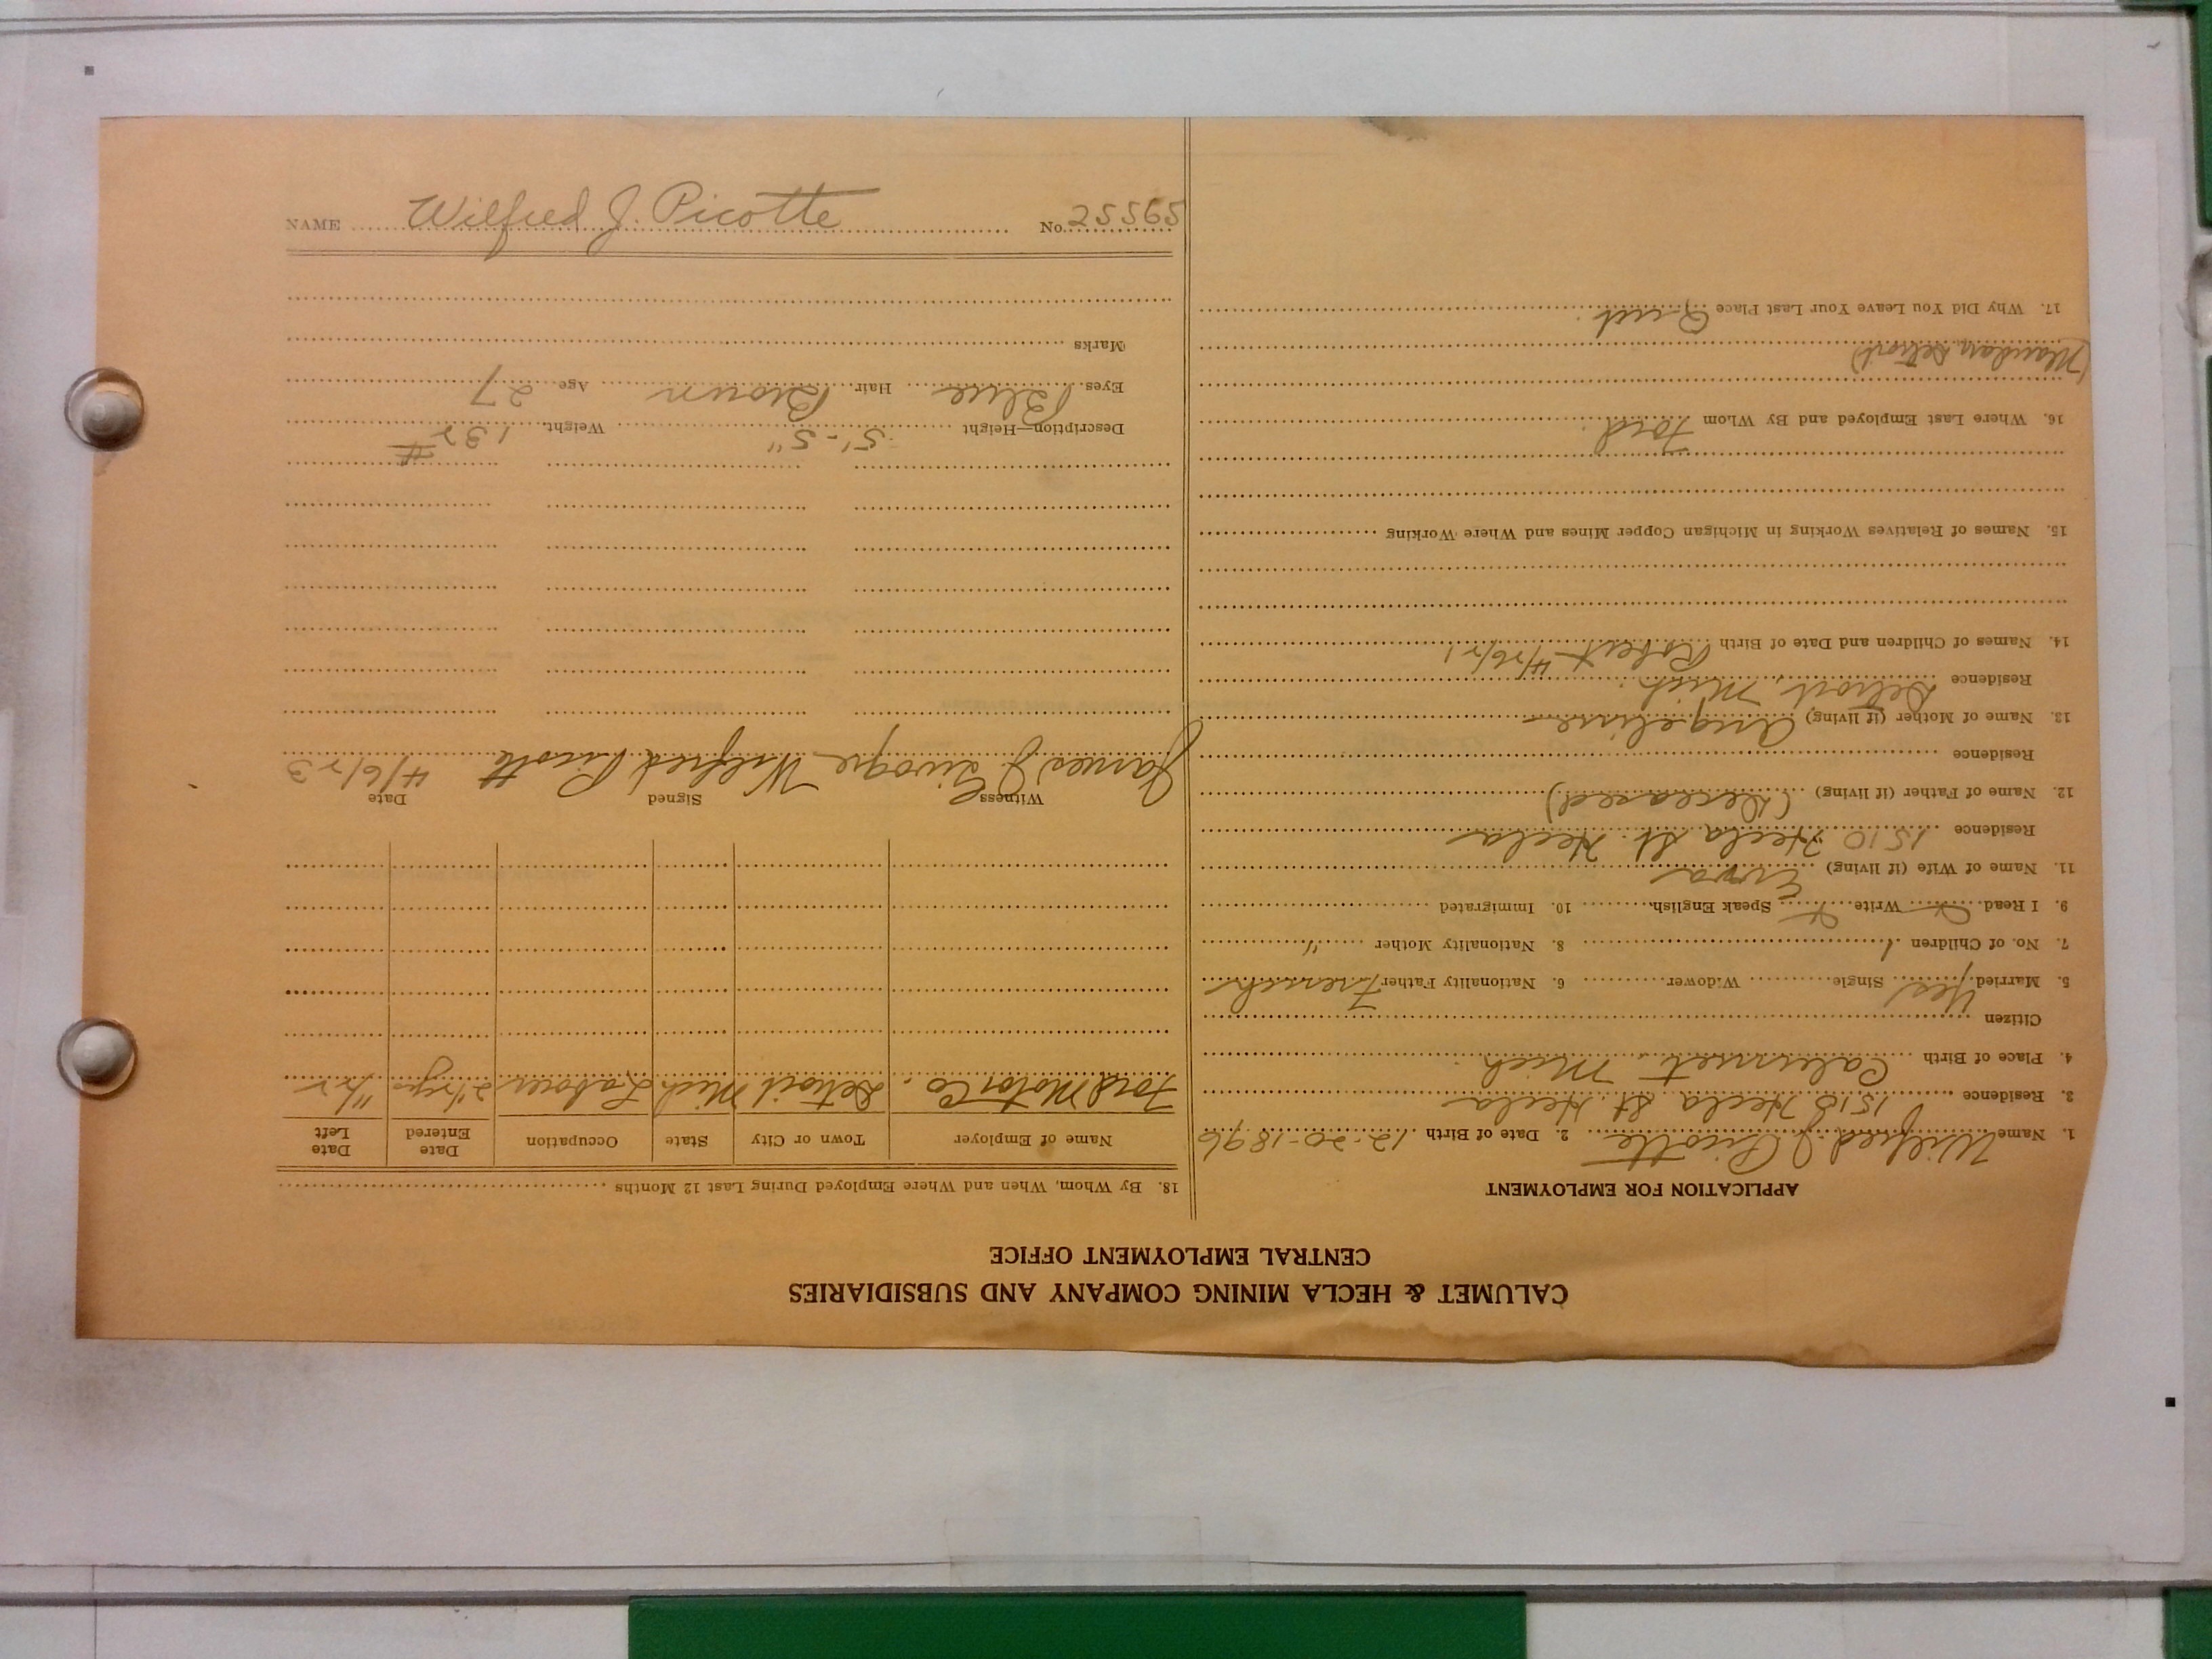 CALUMET & HECLA MINING COMPANY AND SUBSIDIARIES
CENTRAL EMPLOYMENT OFFICE
APPLICATION FOR EMPLOYMENT
1. Name Wilfred J. Picotte 2. Date of Birth 12-20-1896
3. Residence 1510 Hecla St. Hecla
4. Place of Birth Calumet, Mich.
Citizen
5. Married Yes Single Widower 6. Nationality Father French
7. No. of Children 1 8. Nationality Mother "
9. I Read Write Speak English 10. Immigrated
11. Name of Wife (if living)
Residence 1510 Hecla St. Hecla
12. Name of Father (if living) (Deceased)
Residence
13. Name of Mother (if living) Angeline
Residence Detroit, Mich.
14. Names of Children and Date of Birth Robert 4/26/21
15. Names of Relatives Working in Michigan Copper Mines and Where Working
16. Where Last Employed and By Whom Ford.
Detroit)
17. Why Did You Leave Your Last Place Quit.
18. By Whom, When and Where Employed During Last 12 Months
Name of Employer Town or City State Occupation Date Entered Date Left
Ford Motor Co. Detroit Mich Laborer
Witness Signed Date
James J. Wilfred Picotte 4/6/23
Description—Height 5'-5" Weight 132 #
Eyes Blue Hair Brown Age 27
Marks
NAME Wilfred J. Picotte No. 25565